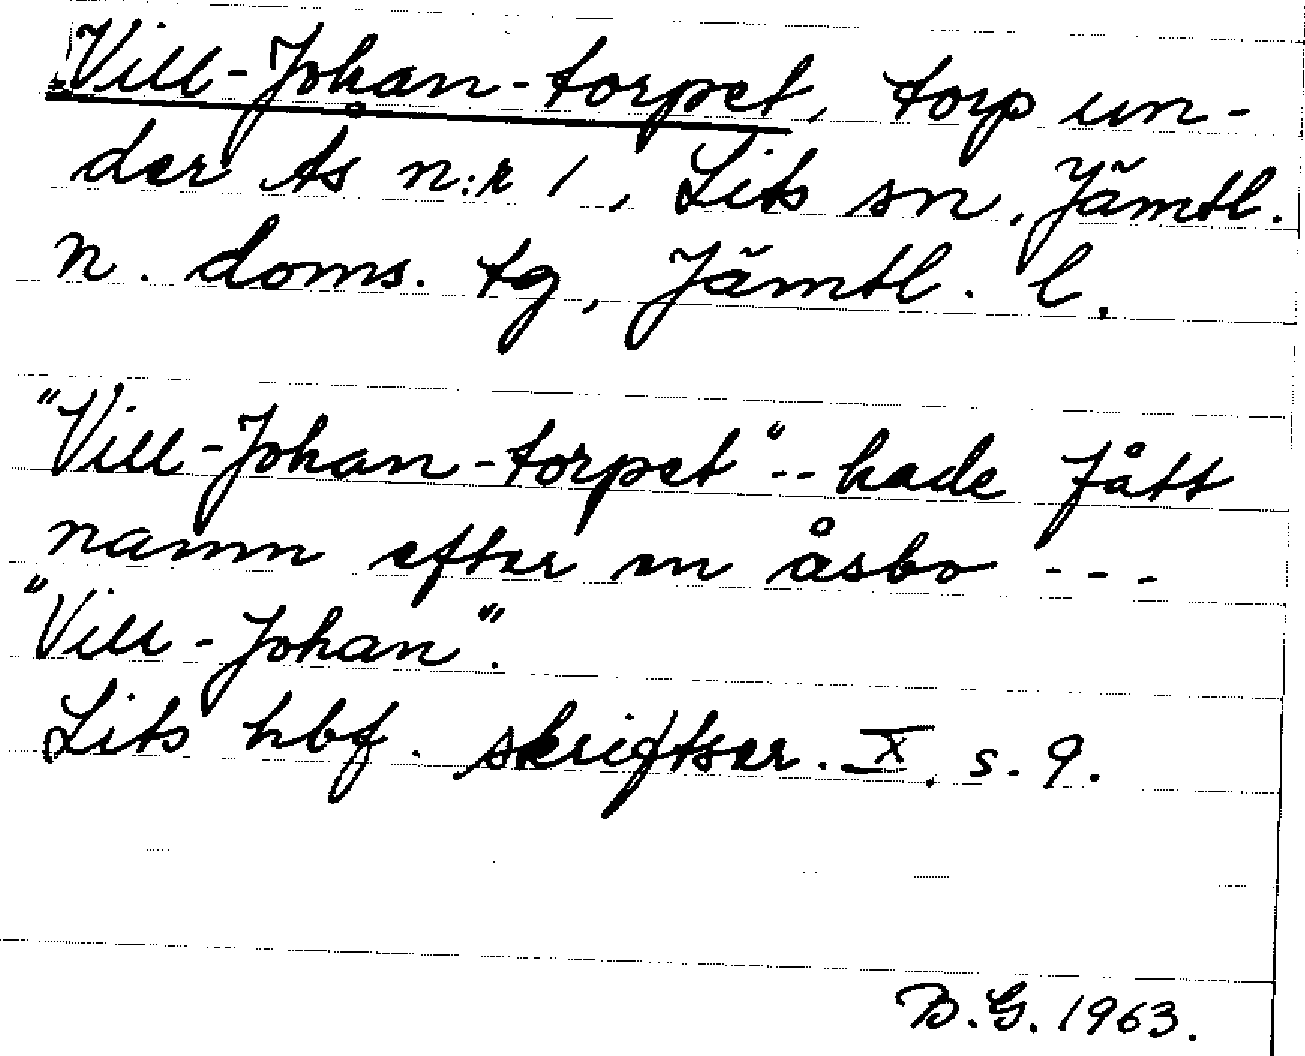 Vill-Johan-torpet, torp un-
der Ås n:r 1, Lits sn, Jämtl.
n. doms. tg, Jämtl. l.
"Vill-Johan-torpet" -- hade fått
namn efter en åsbo ---
"Vill-Johan".
Lits hbf. skriftser. X, s. 9.
B.G. 1963.